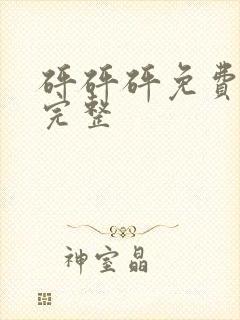 砰砰砰免费
完整
神室晶